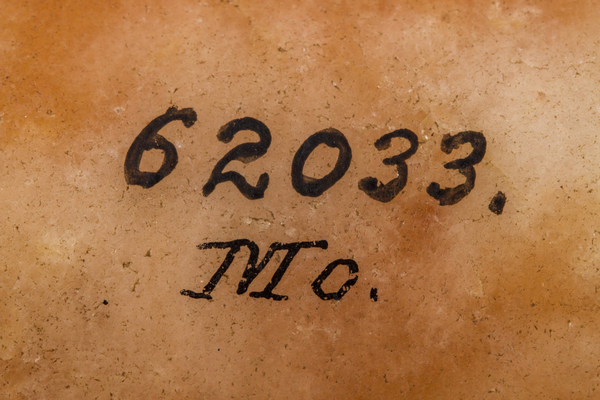 62033.
Mo.